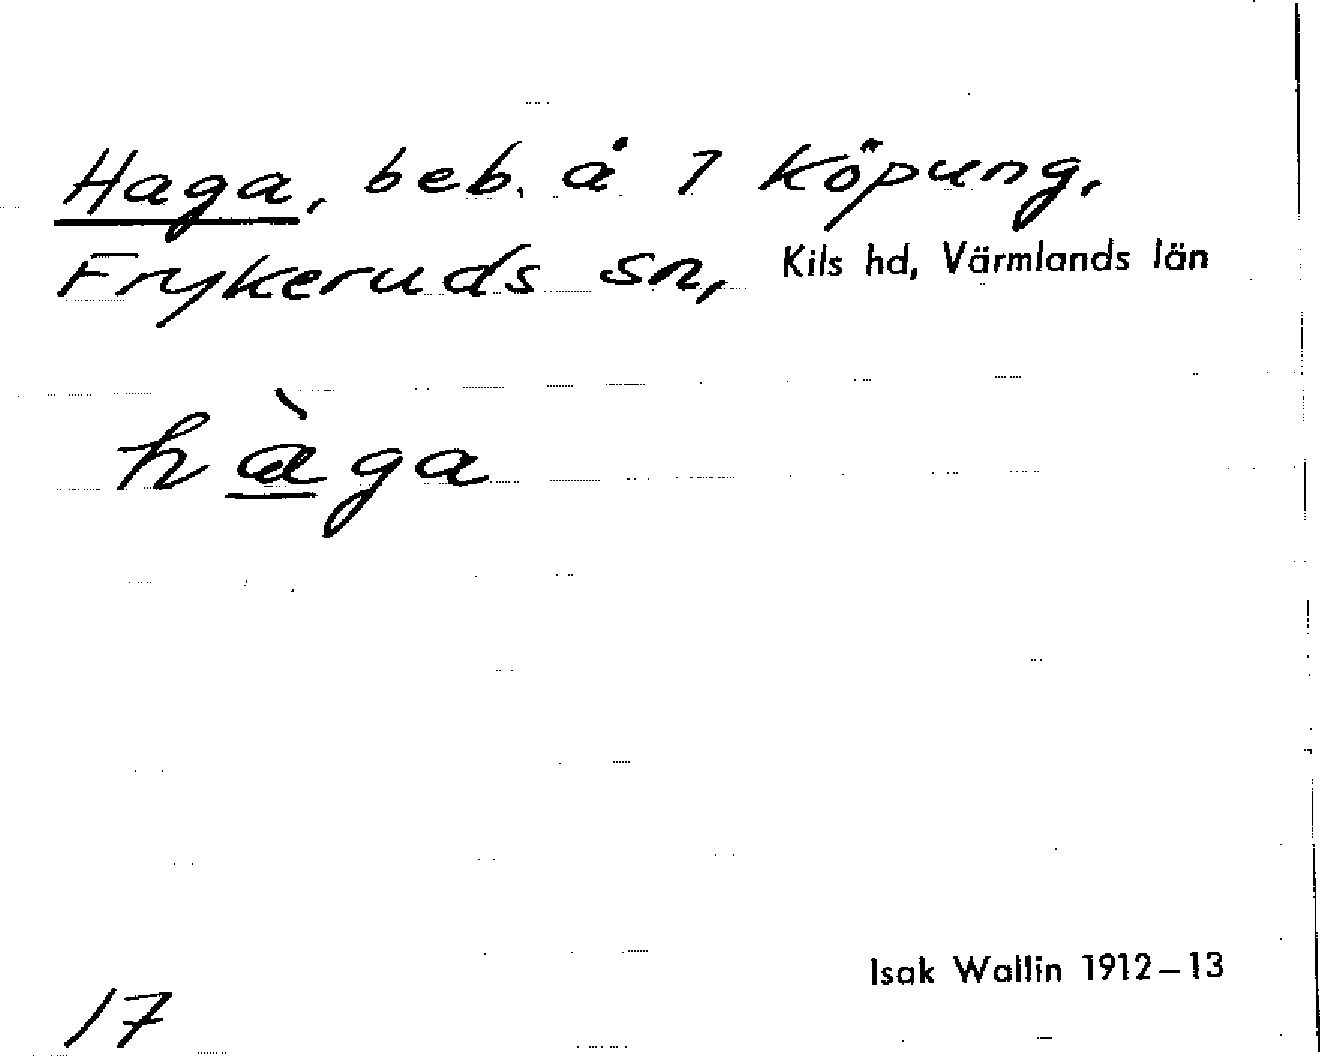 Haga, beb. å 1 Köpung,
Frykeruds sn, Kils hd, Värmlands län
hàga
Isak Wallin 1912–13
17